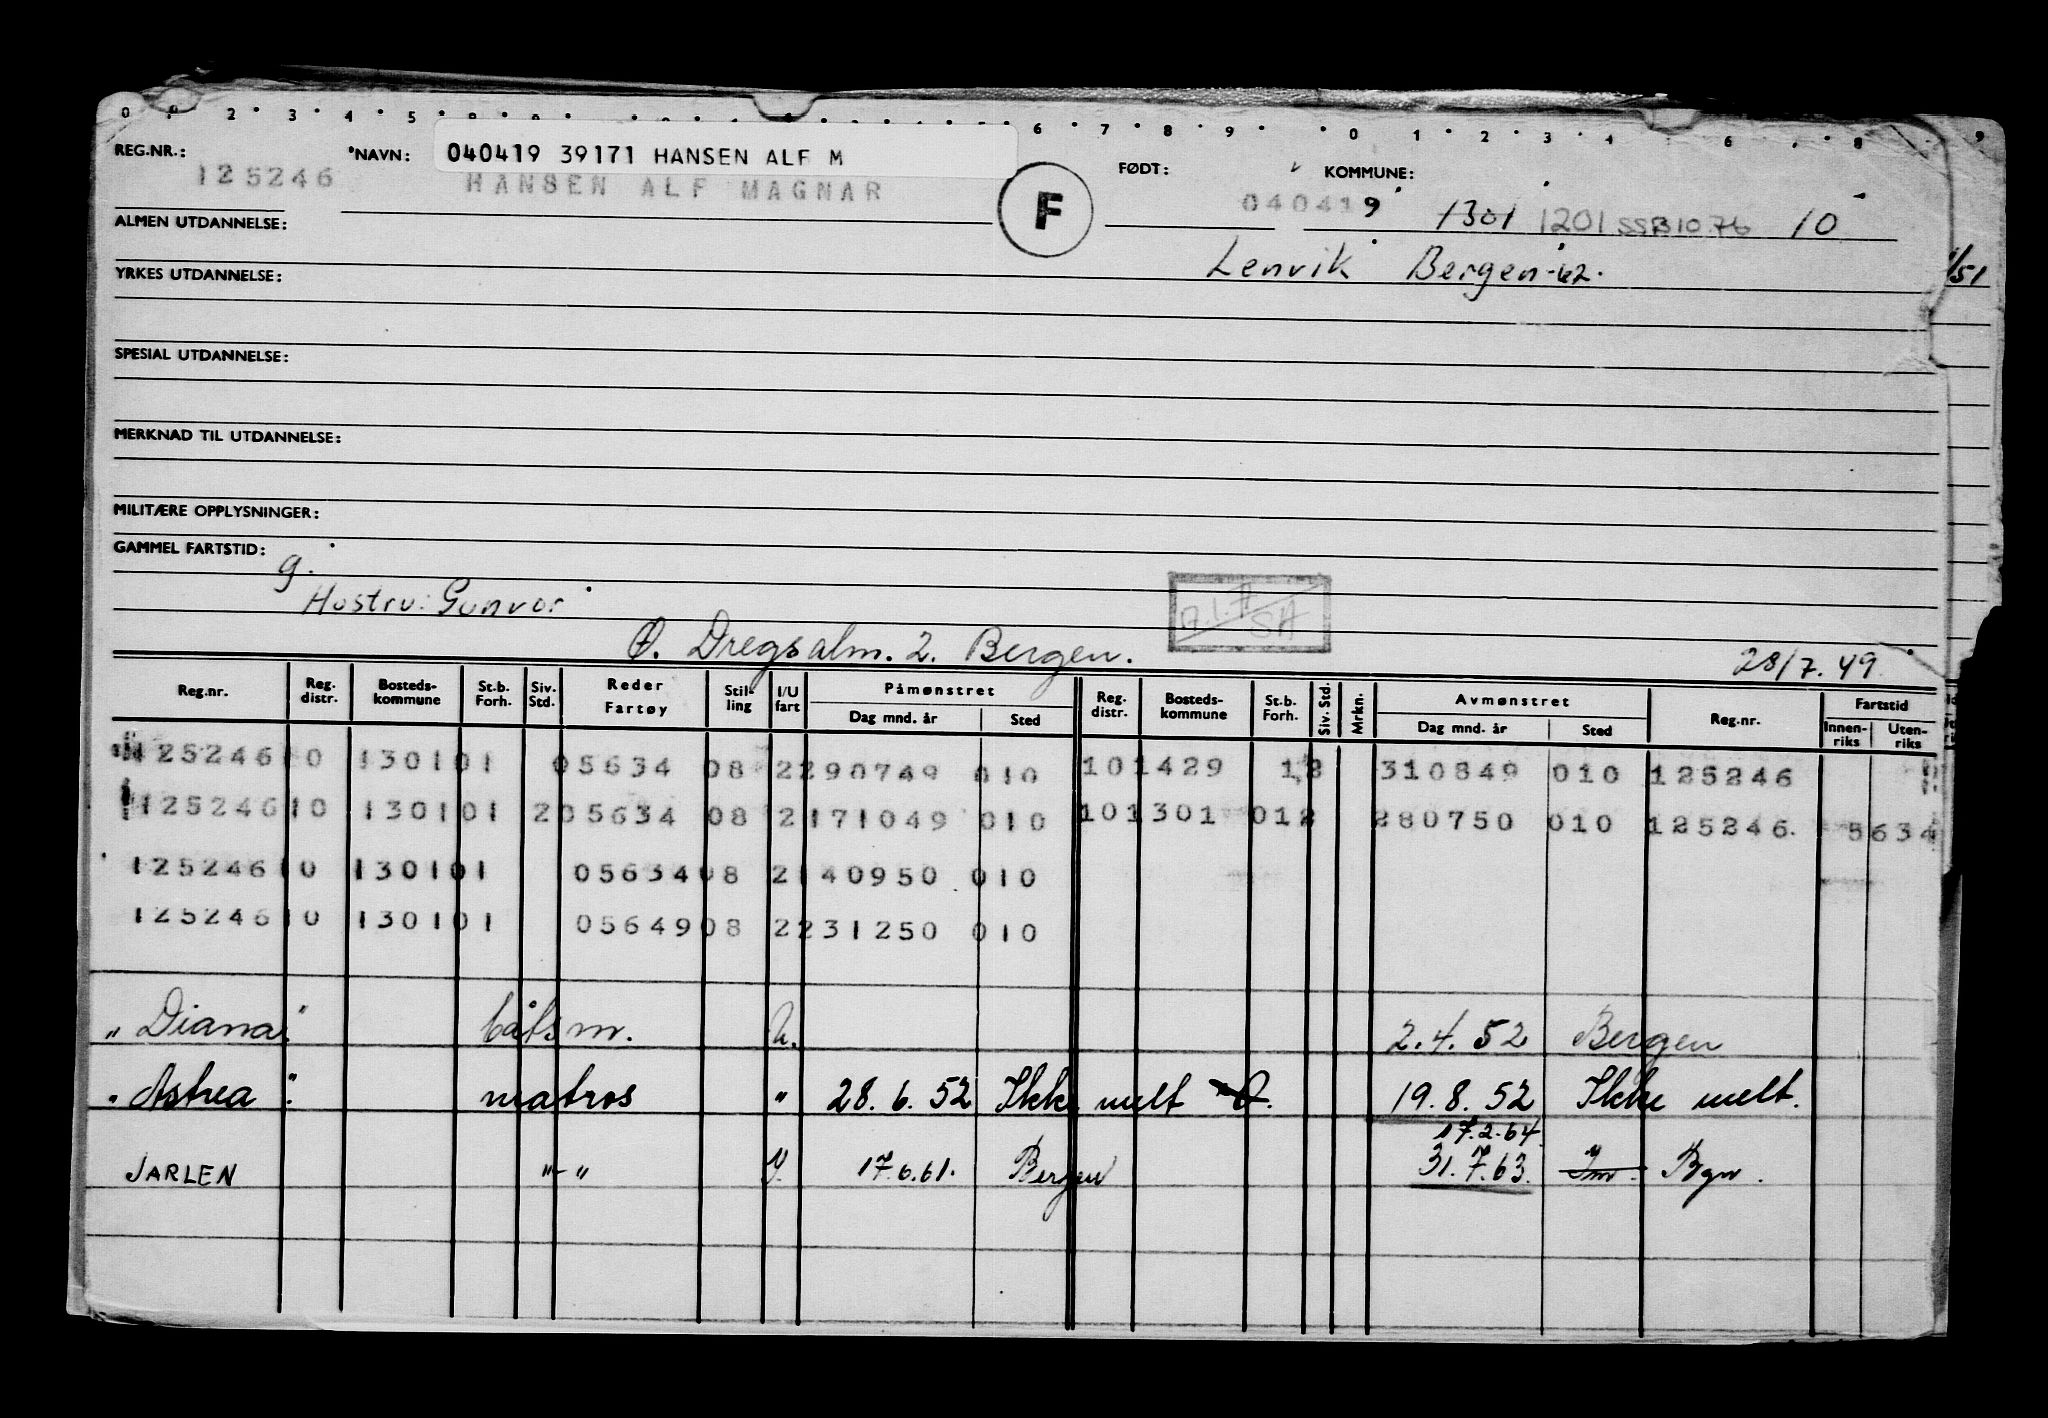 0 2 3 4 5 6 7 8 9 0 1 2 3 4 6 8 9
REG.NR.: 125246 NAVN: 040419 39171 HANSEN ALF M FØDT: KOMMUNE:
HANSEN ALF MAGNAR F 040419 1301 1201 SSB 10.76 10
ALMEN UTDANNELSE:
Lenvik Bergen-62. /51
YRKES UTDANNELSE:
SPESIAL UTDANNELSE:
MERKNAD TIL UTDANNELSE:
MILITÆRE OPPLYSNINGER:
GAMMEL FARTSTID: g.
Hustru: Gunvor
Ø. Dregsalm. 2. Bergen. 28/7.49
Reg.nr. Reg. distr. Bosteds-kommune St.b. Forh. Siv. Std. Reder Fartøy Stil-ling I/U fart Påmønstret Dag mnd. år Sted Reg. distr. Bosteds-kommune St.b. Forh. Siv. Std. Mrkn. Avmønstret Dag mnd. år Sted Reg.nr. Fartstid Innen-riks Uten-riks
125246 10 1301 01 05634 08 2 290749 010 10 1429 1 2 310849 010 125246
125246 10 1301 01 2 05634 08 2 171049 010 10 1301 01 2 280750 010 125246 5634
125246 10 1301 01 05634 08 2 140950 010
125246 10 1301 01 05649 08 2 231250 010
"Diana" båtsm. U. 2.4.52 Bergen
"Astrea" matros " 28.6.52 Ikke melt 19.8.52 Ikke melt.
17.2.64.
JARLEN "-" 17.6.61. Bergen 31.7.63. Bgn.